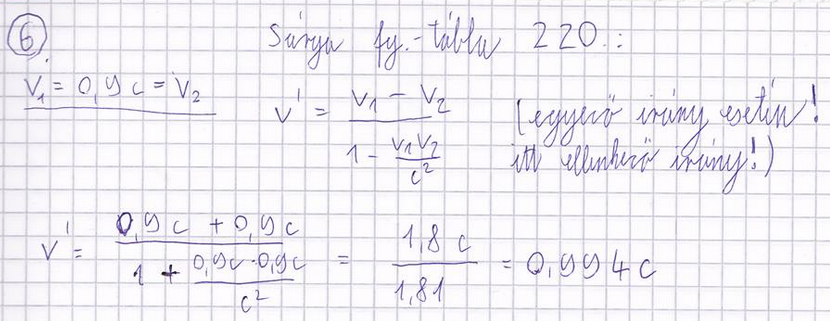 6. Sárga fg.-tábla 220.:
V₁ = 0,9c = V₂
v' = (v₁ - v₂) / (1 - v₁v₂/c²) (egyező irány esetén!
itt ellenkező irány!)
v' = (0,9c + 0,9c) / (1 + 0,9c·0,9c/c²) = 1,8c / 1,81 = 0,994c